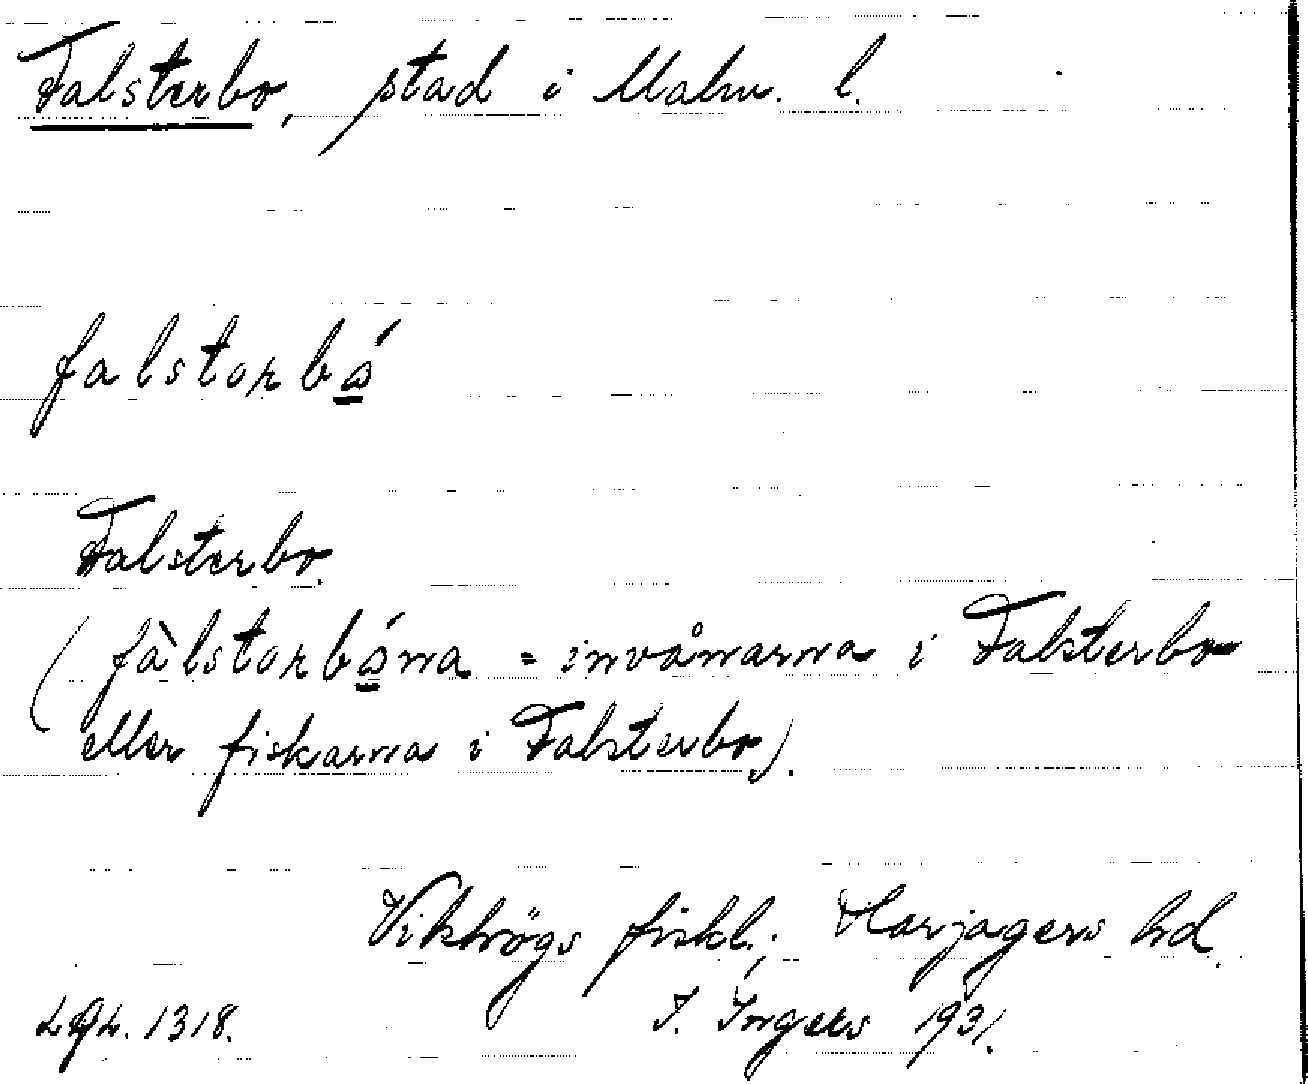 Falsterbo, stad i Malm. l.
falstorbó
Falsterbo.
(fàlstorbóna = invånarna i Falsterbo
eller fiskarna i Falsterbo).
Vikhögs fiskl.; Harjagers hd.
I. Ingers 1931.
1318.